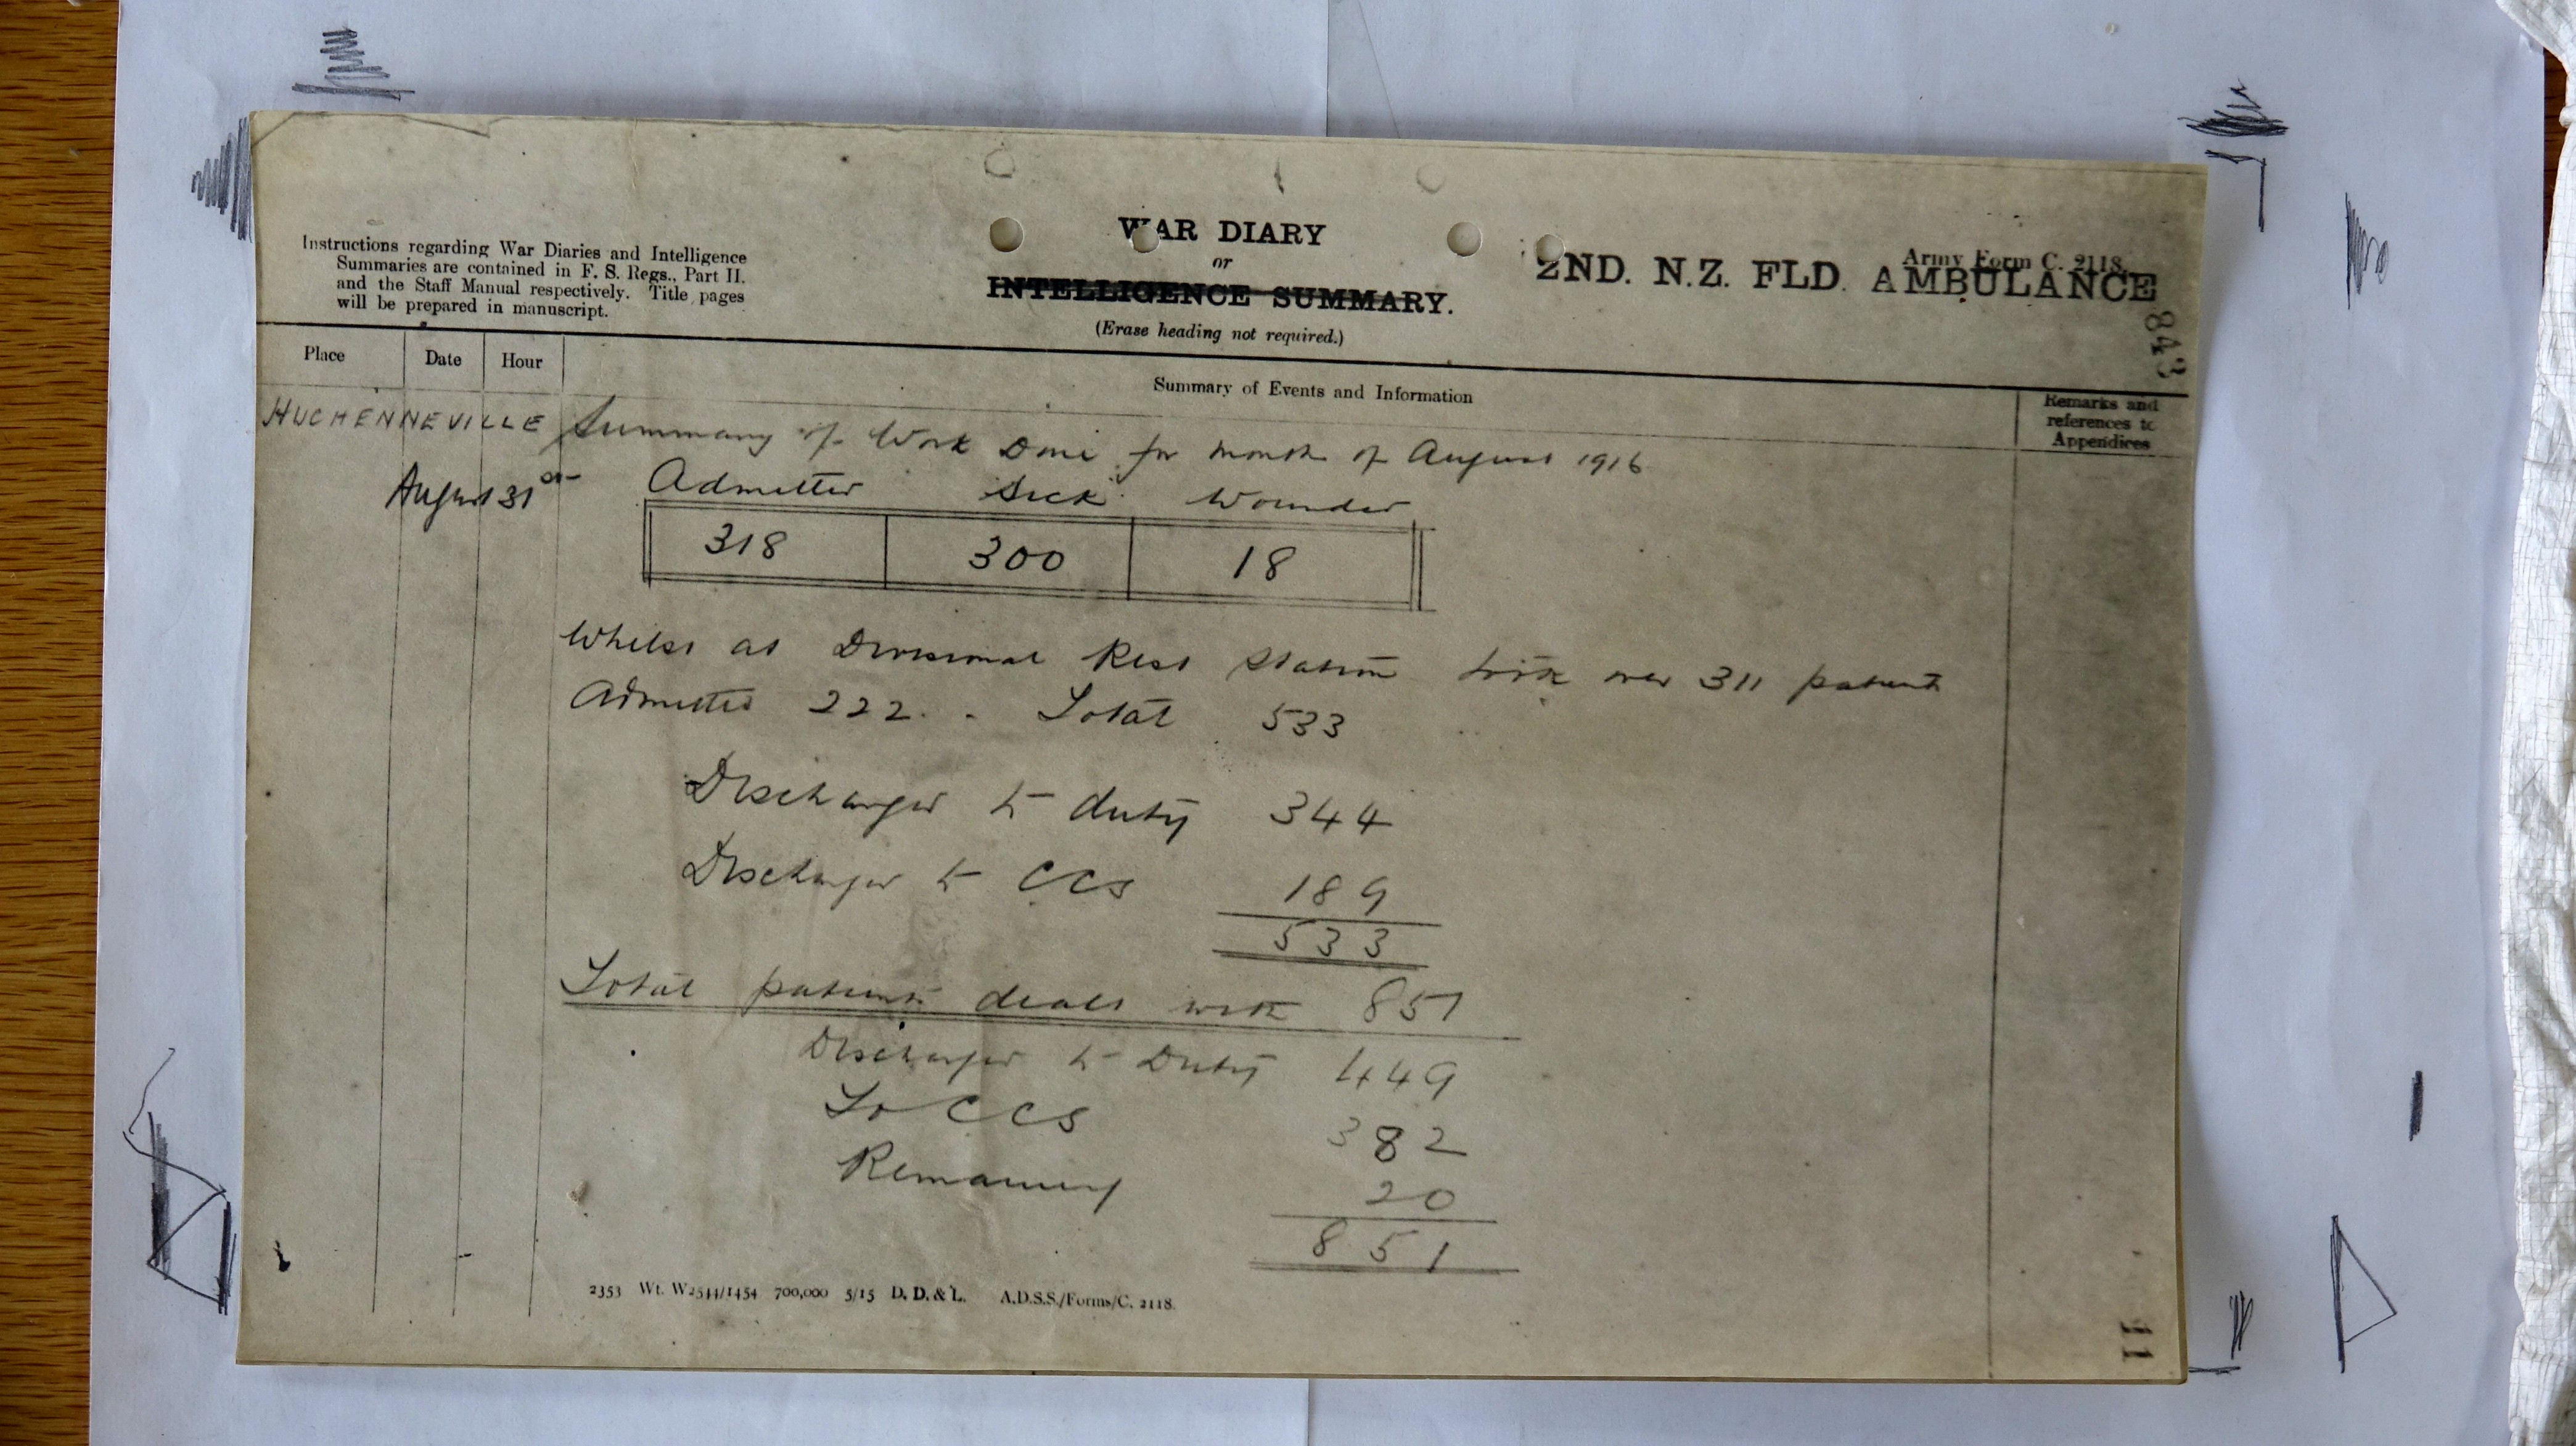 Instructions regarding War Diaries and Intelligence
Summaries are contained in F. S. Regs., Part II.
and the Staff Manual respectively. Title pages
will be prepared in manuscript.
WAR DIARY
or
INTELLIGENCE SUMMARY.
(Erase heading not required.)
Army Form C. 2118.
2ND. N.Z. FLD. AMBULANCE
843
Place Date Hour
Summary of Events and Information
Remarks and
references to
Appendices
HUCHENNEVILLE Summary of Work Done for month of August 1916
August 31st
Admitted Sick Wounded
318 300 18
Whilst at Divisional Rest Station took over 311 patients
Admitted 222. . Total 533
Discharged to duty 344
Discharged to CCS 189
533
Total patients dealt with 851
Discharged to Duty 449
To CCS 382
Remaining 20
851
2353 Wt. W2544/1454 700,000 5/15 D. D. & L. A.D.S.S./Forms/C. 2118.
11